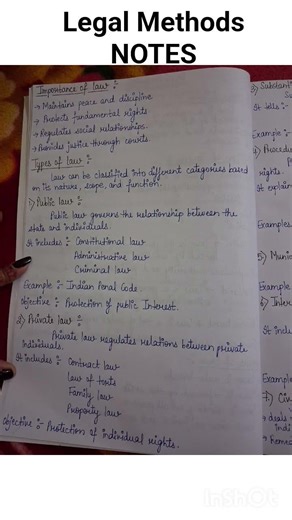 Legal Methods
NOTES
Importance of law :-
→ Maintains peace and discipline.
→ Protects fundamental rights
→ Regulates social relationships.
→ Provides justice through courts
Types of law :-
Law can be classified into different categories based
on its nature, scope, and function.
1) Public law :-
Public law governs the relationship between the
state and individuals.
It includes :- Constitutional law
Administrative law
Criminal law
Example :- Indian Penal Code.
Objective :- Protection of public Interest.
2) Private law :-
Private law regulates relations between private
individuals.
It includes :- Contract law
Law of torts
Family law
Property law
Objective :- Protection of individual rights.
3) Substanti
It tells :-
Example :-
4) Procedu
rights.
It explain
Examples
5) Munic
Example
6) Inter
It inclu
Example
7.) Civ
→ deals
indi
→ Remed
InShOt